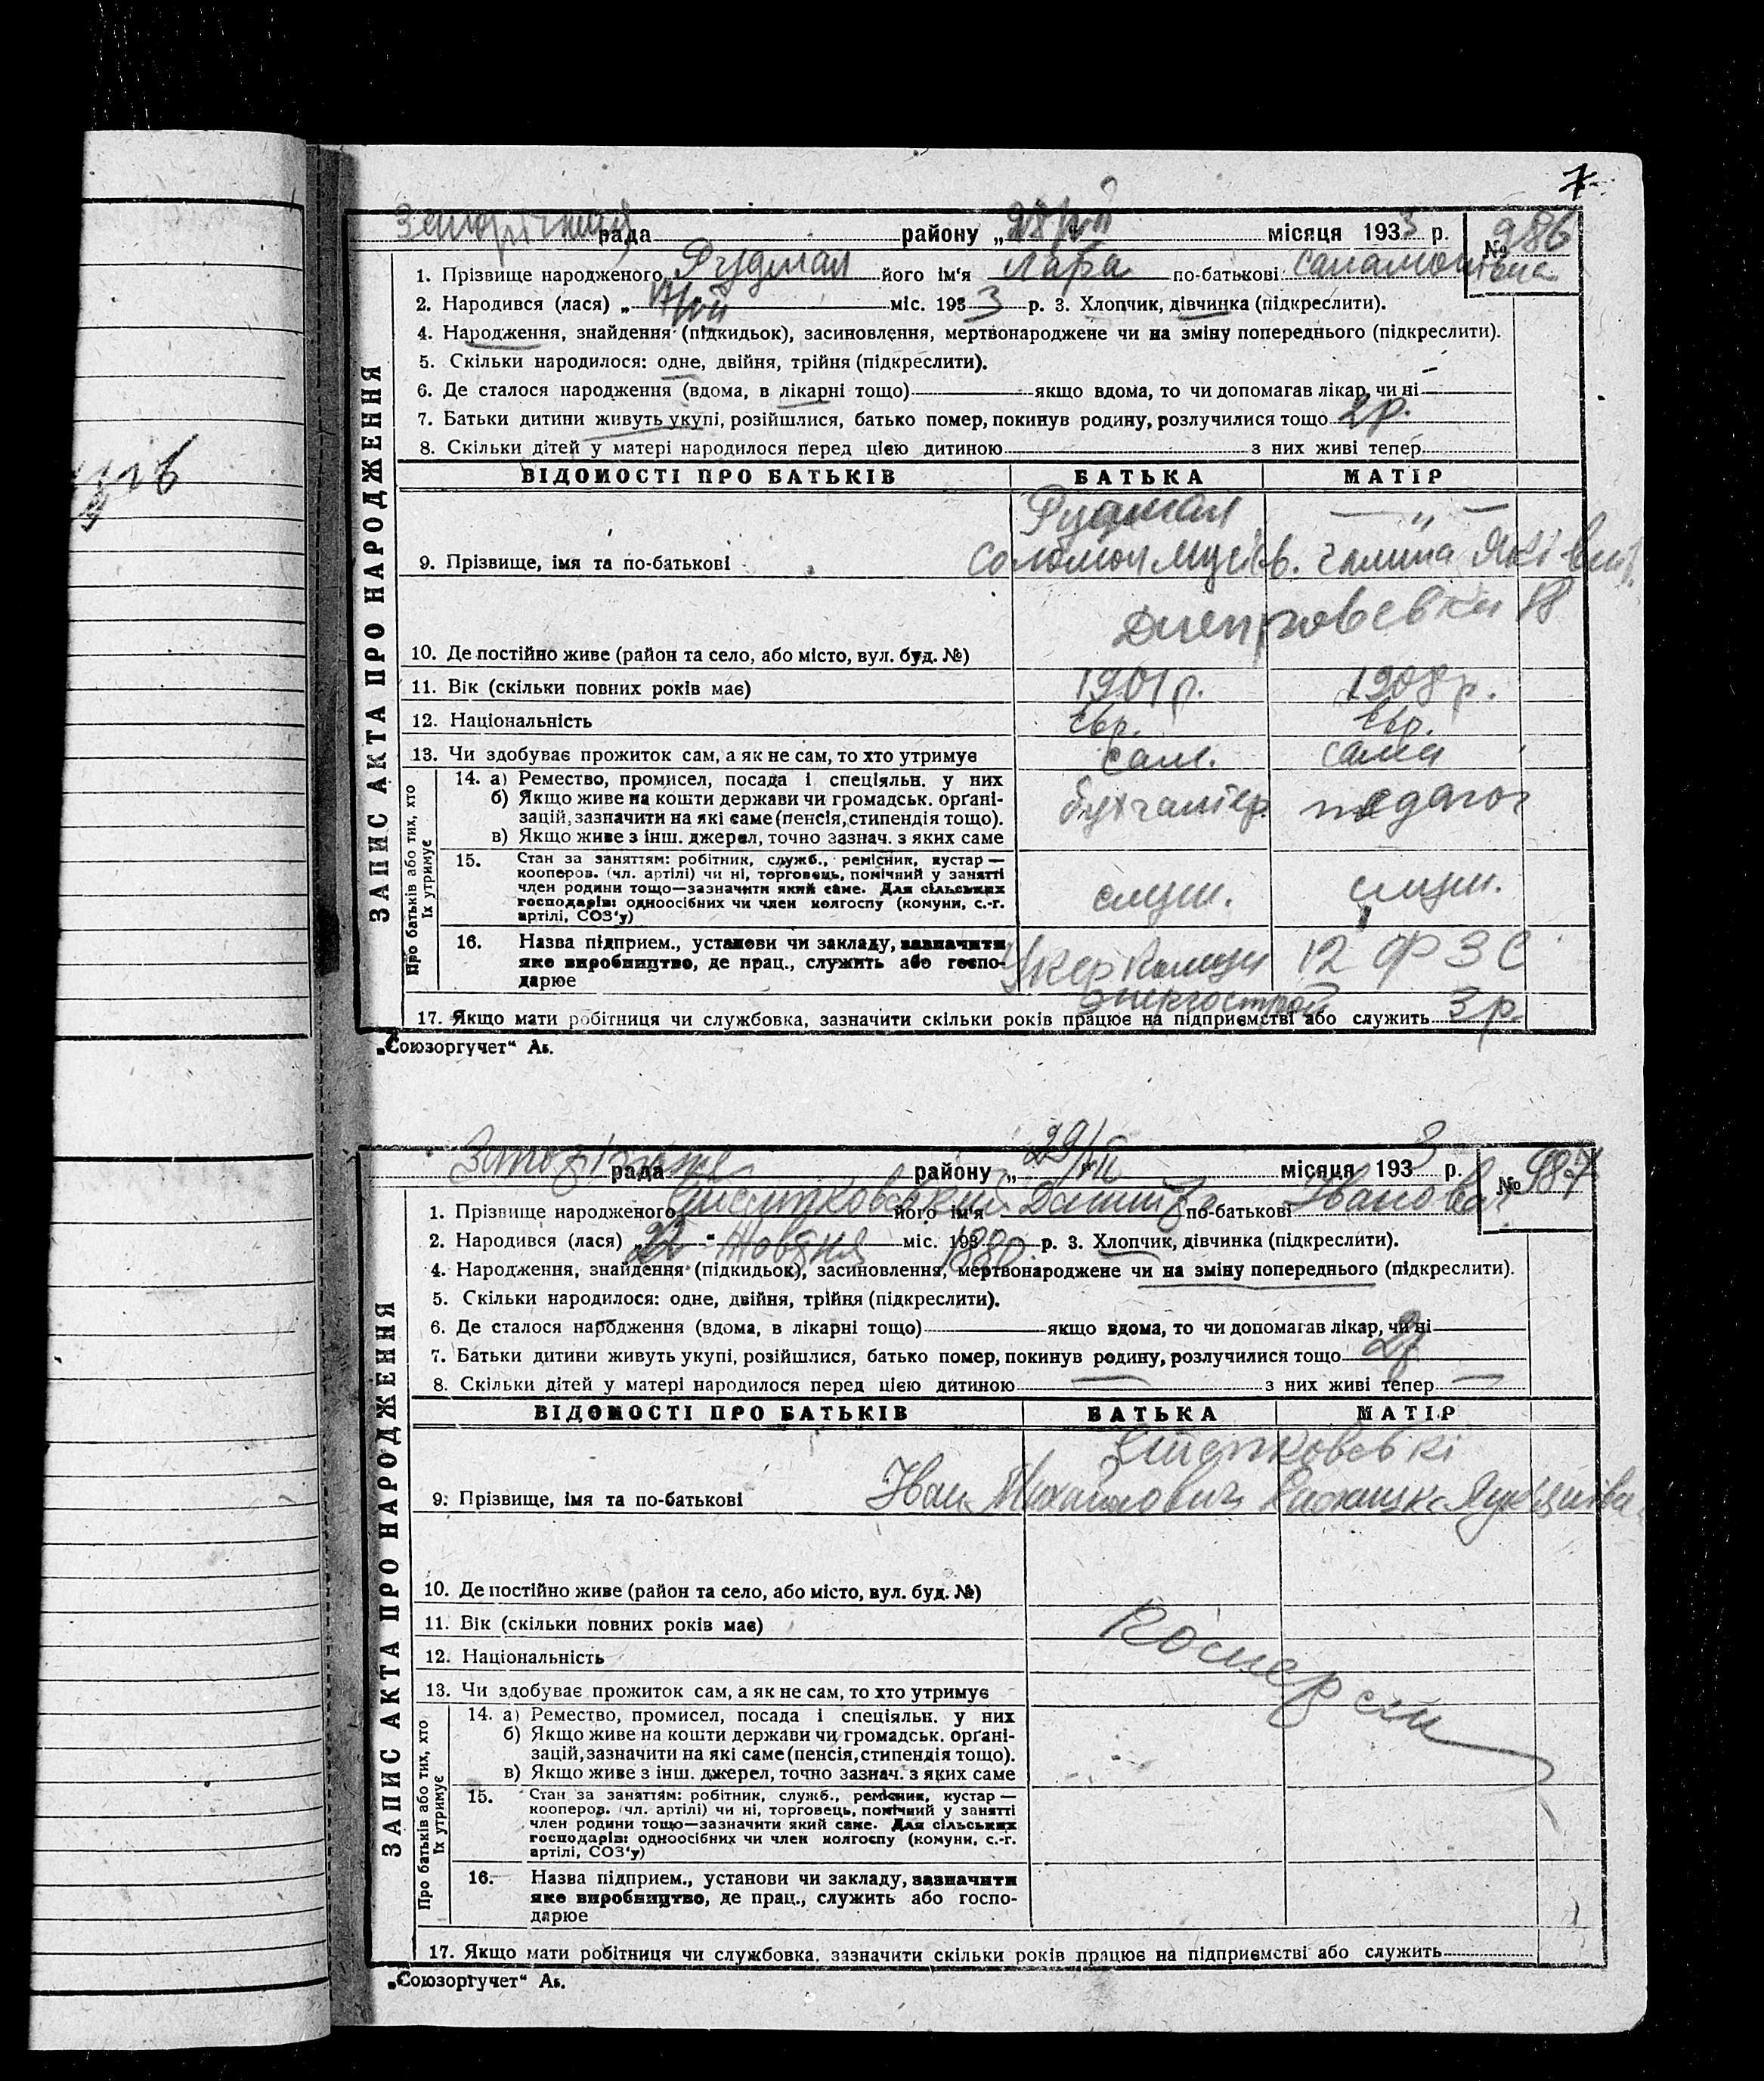 7
рада району „28/VII місяця 1933 р. № 986
1. Прізвище народженого Рудман його ім'я Лара по-батькові Саламонівна
2. Народився (лася) „ міс. 1933 р. 3. Хлопчик, дівчинка (підкреслити).
4. Народження, знайдення (підкидьок), засиновлення, мертвонароджене чи на зміну попереднього (підкреслити).
5. Скільки народилося: одне, двійня, трійня (підкреслити).
6. Де сталося народження (вдома, в лікарні тощо) якщо вдома, то чи допомагав лікар, чи ні —
7. Батьки дитини живуть укупі, розійшлися, батько помер, покинув родину, розлучилися тощо 2 р.
8. Скільки дітей у матері народилося перед цією дитиною з них живі тепер
ЗАПИС АКТА ПРО НАРОДЖЕННЯ
ВІДОМОСТІ ПРО БАТЬКІВ БАТЬКА МАТІР
Рудман — „ —
9. Прізвище, імя та по-батькові Соломон Мусієв. Галина Яківн.
10. Де постійно живе (район та село, або місто, вул. буд. №)
11. Вік (скільки повних років має) 1901 р. 1908 р.
12. Національність євр. євр.
13. Чи здобуває прожиток сам, а як не сам, то хто утримує сам. сама
Про батьків або тих, хто їх утримує
14. а) Ремество, промисел, посада і спеціяльн. у них
б) Якщо живе на кошти держави чи громадськ. орґані-
зацій, зазначити на які саме (пенсія, стипендія тощо). бухгалтер педагог
в) Якщо живе з інш. джерел, точно зазнач. з яких саме
15. Стан за заняттям: робітник, служб., ремісник, кустар —
кооперов. (чл. артілі) чи ні, торговець, помічний у занятті
член родини тощо—зазначити який саме. Для сільських
господарів: одноосібних чи член колгоспу (комуни, с.-г.
артілі, СОЗ'у) служ. служ.
16. Назва підприєм., установи чи закладу, зазначити
яке виробництво, де прац., служить або госпо- 12 ФЗС
дарюе Энергострой
17. Якщо мати робітниця чи службовка, зазначити скільки років працює на підприємстві або служить 3 р.
„Союзоргучет“ Аб.
рада району „29/VII місяця 1933 р. № 987
1. Прізвище народженого його ім'я Данило по-батькові Іванова
2. Народився (лася) „22“ Жовтня міс. 193 1880 р. 3. Хлопчик, дівчинка (підкреслити).
4. Народження, знайдення (підкидьок), засиновлення, мертвонароджене чи на зміну попереднього (підкреслити).
5. Скільки народилося: одне, двійня, трійня (підкреслити).
6. Де сталося народження (вдома, в лікарні тощо) якщо вдома, то чи допомагав лікар, чи ні
7. Батьки дитини живуть укупі, розійшлися, батько помер, покинув родину, розлучилися тощо
8. Скільки дітей у матері народилося перед цією дитиною — з них живі тепер —
ЗАПИС АКТА ПРО НАРОДЖЕННЯ
ВІДОМОСТІ ПРО БАТЬКІВ БАТЬКА МАТІР
9. Прізвище, імя та по-батькові Іван Михайлович
10. Де постійно живе (район та село, або місто, вул. буд. №)
11. Вік (скільки повних років має)
12. Національність
13. Чи здобуває прожиток сам, а як не сам, то хто утримує
Про батьків або тих, хто їх утримує
14. а) Ремество, промисел, посада і спеціяльн. у них
б) Якщо живе на кошти держави чи громадськ. орґані-
зацій, зазначити на які саме (пенсія, стипендія тощо).
в) Якщо живе з інш. джерел, точно зазнач. з яких саме
15. Стан за заняттям: робітник, служб., ремісник, кустар —
кооперов. (чл. артілі) чи ні, торговець, помічний у занятті
член родини тощо—зазначити який саме. Для сільських
господарів: одноосібних чи член колгоспу (комуни, с.-г.
артілі, СОЗ'у)
16. Назва підприєм., установи чи закладу, зазначити
яке виробництво, де прац., служить або госпо-
дарюе
17. Якщо мати робітниця чи службовка, зазначити скільки років працює на підприємстві або служить
„Союзоргучет“ Аб.